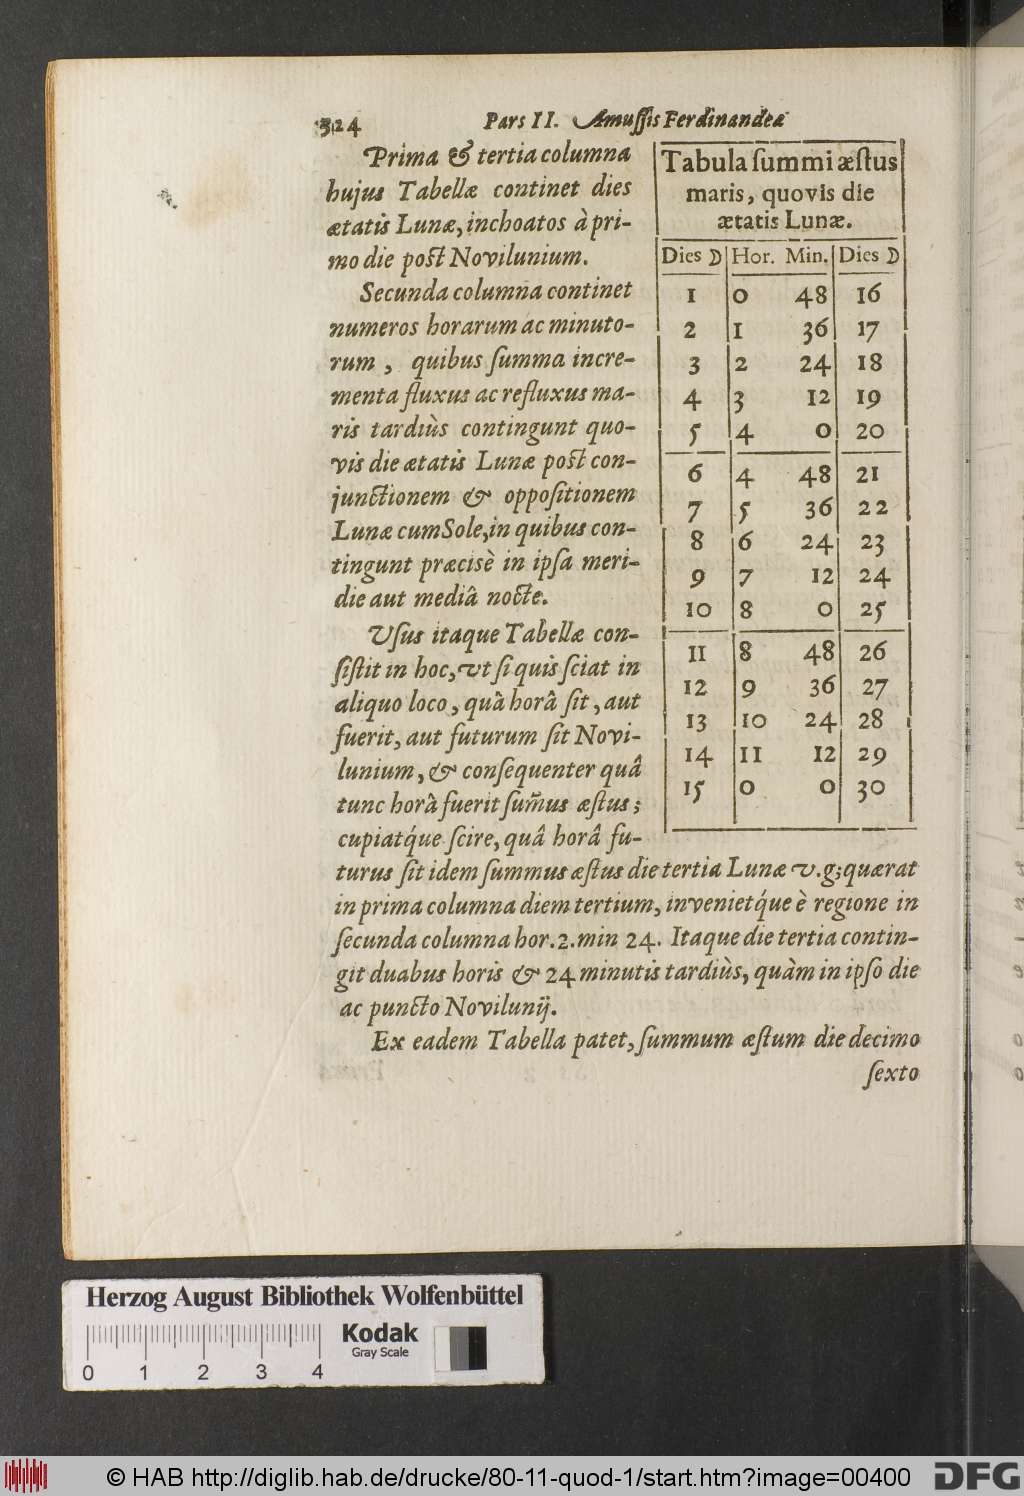 324 Pars II. Amuſſis Ferdinandea
Prima & tertia columna
hujus Tabellæ continet dies
ætatis Lunæ, inchoatos à pri-
mo die poſt Novilunium.
Secunda columna continet
numeros horarum ac minuto-
rum, quibus ſumma incre-
menta fluxus ac refluxus ma-
ris tardiùs contingunt quo-
vis die ætatis Lunæ poſt con-
junctionem & oppoſitionem
Lunæ cum Sole, in quibus con-
tingunt præcisè in ipſa meri-
die aut mediâ nocte.
Vſus itaque Tabellæ con-
ſiſtit in hoc, vt ſi quis ſciat in
aliquo loco, quâ horâ ſit, aut
fuerit, aut futurum ſit Novi-
lunium, & conſequenter quâ
tunc horâ fuerit ſum̃us æſtus;
cupiatq́ue ſcire, quâ horâ fu-
Tabula ſummi æſtus
maris, quovis die
ætatis Lunæ.
Dies ☽ Hor. Min. Dies ☽
1 0 48 16
2 1 36 17
3 2 24 18
4 3 12 19
5 4 0 20
6 4 48 21
7 5 36 22
8 6 24 23
9 7 12 24
10 8 0 25
11 8 48 26
12 9 36 27
13 10 24 28
14 11 12 29
15 0 0 30
turus ſit idem ſummus æſtus die tertia Lunæ v.g; quærat
in prima columna diem tertium, invenietq́ue è regione in
ſecunda columna hor. 2. min 24. Itaque die tertia contin-
git duabus horis & 24 minutis tardiùs, quàm in ipſo die
ac puncto Novilunij.
Ex eadem Tabella patet, ſummum æſtum die decimo
ſexto
Herzog August Bibliothek Wolfenbüttel
Kodak
Gray Scale
0 1 2 3 4
© HAB http://diglib.hab.de/drucke/80-11-quod-1/start.htm?image=00400
DFG